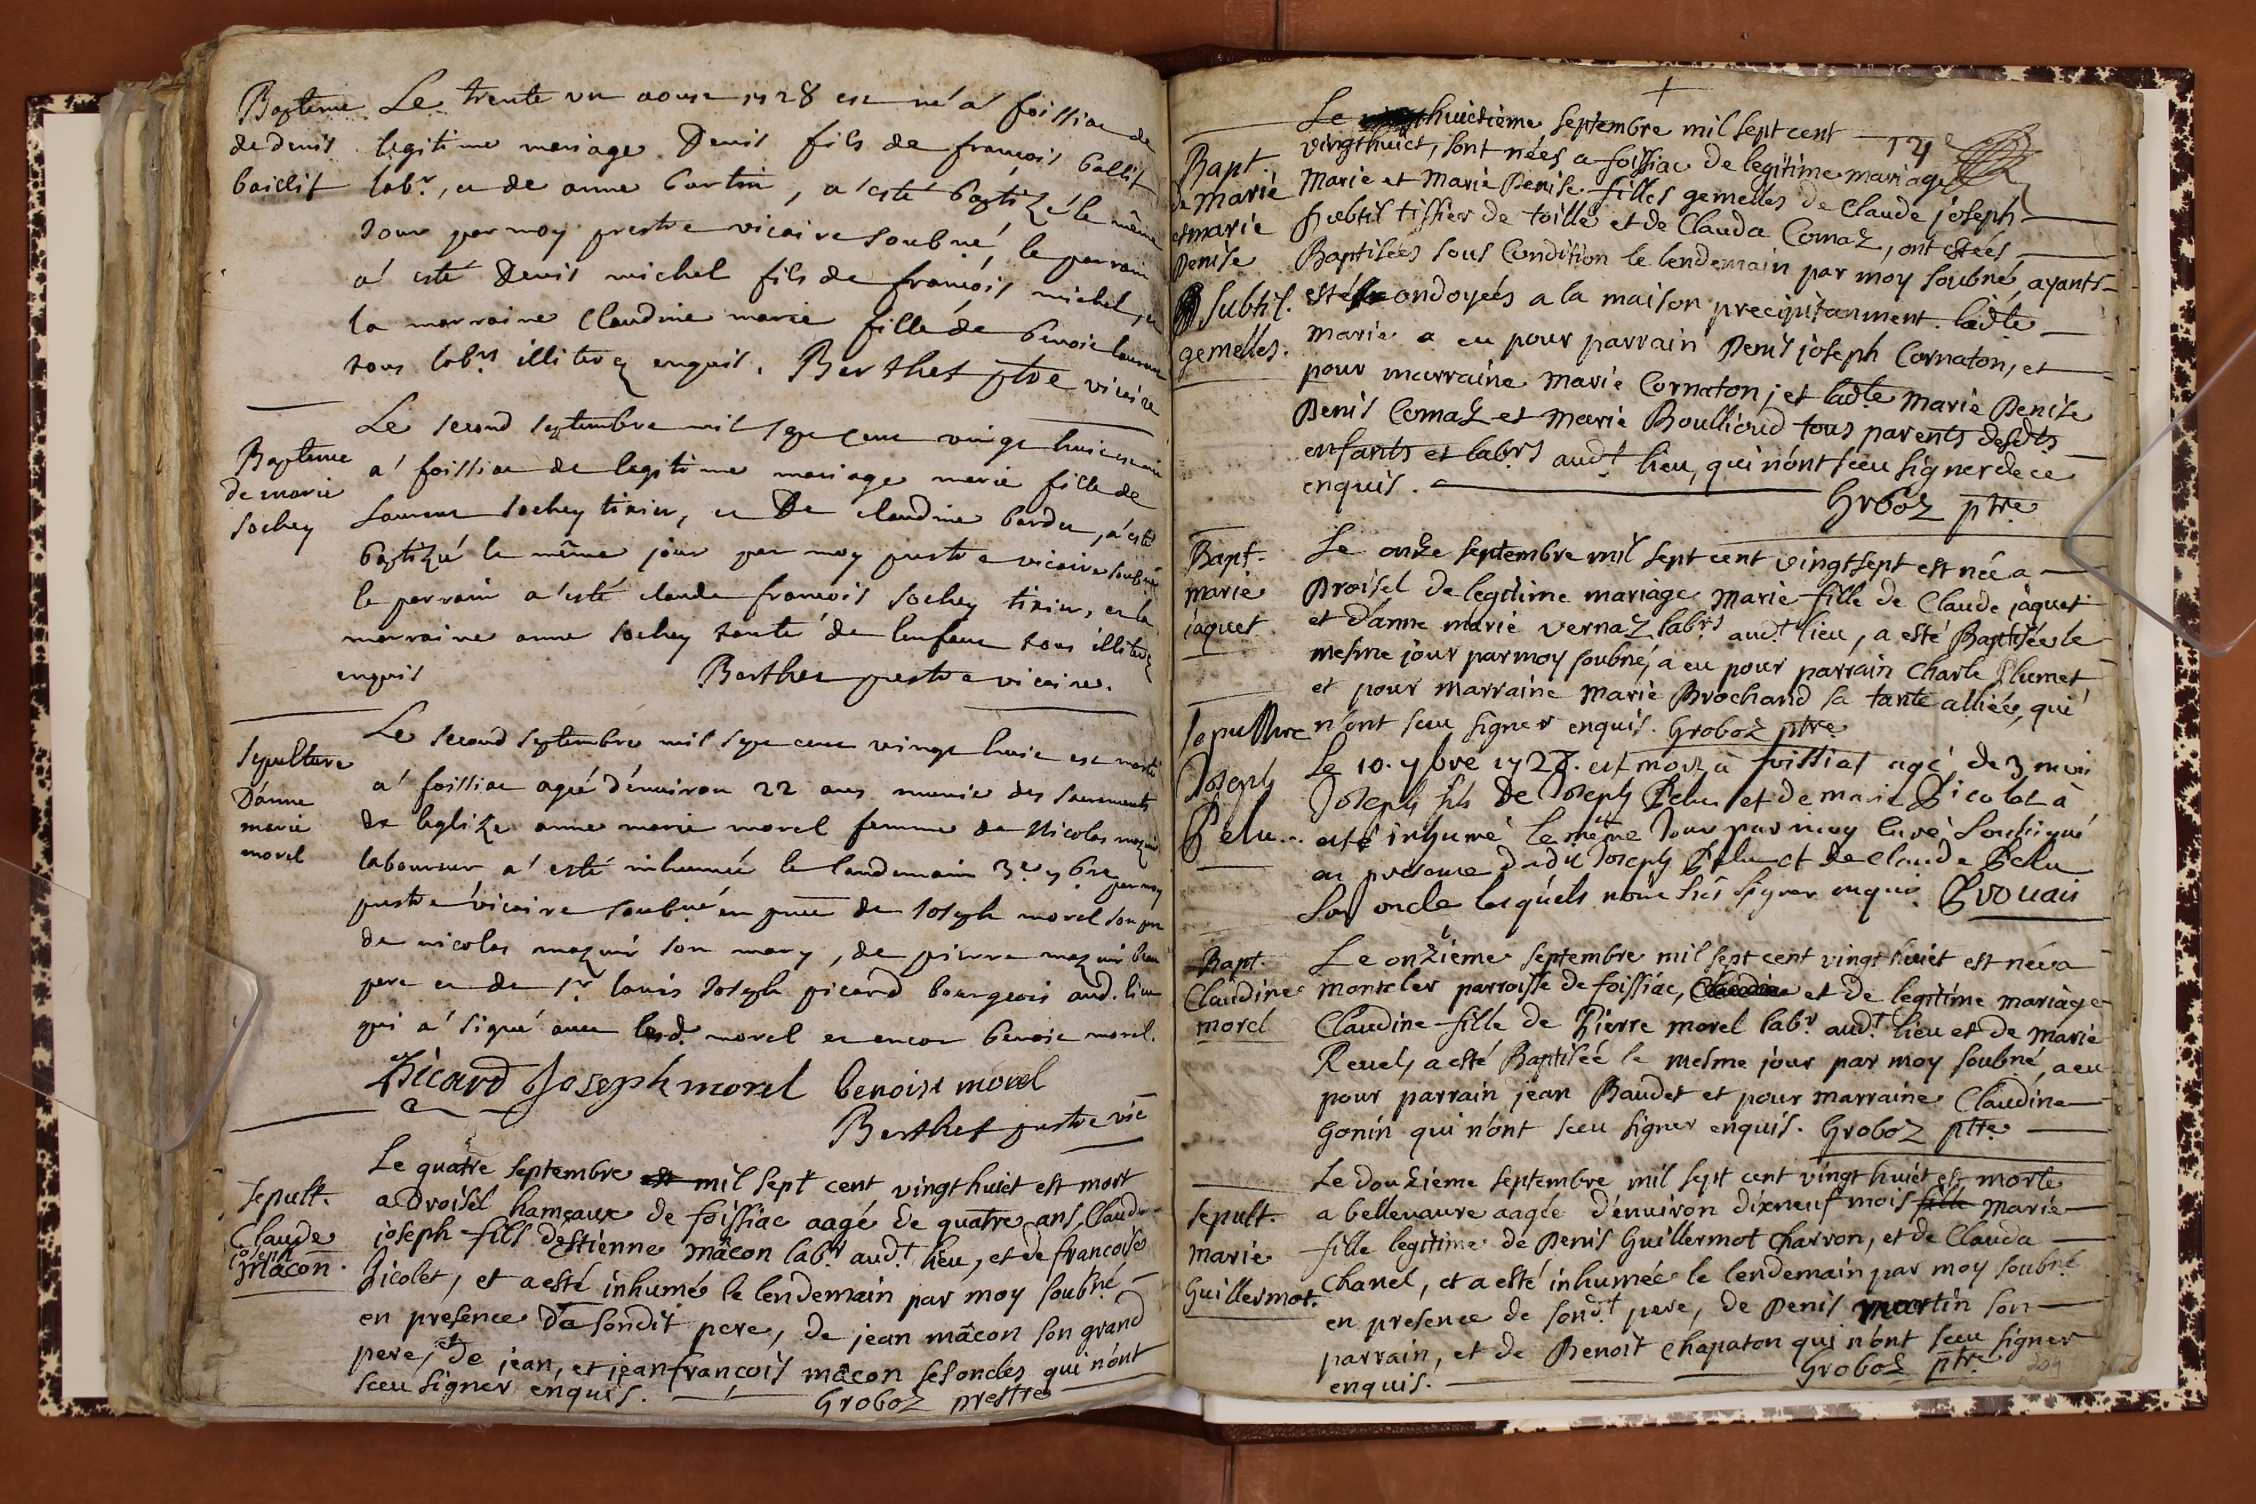 Bapteme
de denis
baillit
Le trente un aoust 1728 est né a' foissiac de
legitime mariage Denis fils de françois ballit
labr, et de anne bartin, a' esté baptizé le même
Jour par moy prestre vicaire soubné, le parrain
a' esté Denis michel fils de françois michel, et
la marraine Claudine marie fille de benoit
tous labrs illiterez enquis. Berthet ptre vicaire
Bapteme
de marie
sochey
Le second septembre mil sept cent vingt huit est née
a' foissiac de legitime mariage marie fille de
Laurent sochey tixier, et De claudine bardet, a' esté
baptizé le même jour par moy prestre vicaire soubné
le parrain a' esté claude françois sochey tixier, et la
marraine anne sochey tante de lenfant tous illiterez
enquis Berthet prestre vicaire.
Sepulture
D'anne
marie
morel
Le second septembre mil sept cent vingt huit est morte
a' foissiac agée d'environ 22 ans munie des sacrements
de leglize anne marie morel femme de Nicolas mazuir
laboureur a' esté inhumée le landemain 3e 7bre par moy
prestre vicaire soubné en pnce de Joseph morel son pere
de nicolas mazuir son mary, de pierre mazuir beau
pere et de sr louis Joseph picard bourgeois aud. lieu
qui a' signé avec led. morel et encor benoit morel.
Picard Joseph morel benoist morel
Berthet prestre vic
sepult.
Claude
joseph
mâcon.
Le quatre septembre est mil sept cent vingt huict est mort
a Droisel hameaux de foissiac aagé de quatre ans Claude
joseph fils d'estienne mâcon labr. audt. lieu, et de françoise
Picolet, et a esté inhumé le lendemain par moy soubné
en presence de sondit pere, de jean mâcon son grand
pere, et de jean, et jean françois mâcon ses oncles qui n'ont
sceu signer enquis. Groboz prestre
174
Bapt
de marie
et marie
Denise
Subtil.
gemelles.
Le huictième septembre mil sept cent
vingthuict, sont nées a foissiac de legitime mariage
Marie et Marie Denise filles gemelles de Claude joseph
subtil tissier de toille et de Clauda Comaz, ont estées
Baptisées sous Condition le lendemain par moy soubné, ayants
esté ondoyées a la maison precipitamment. ladte
Marie a eu pour parrain Denis joseph Cornaton, et
pour marraine Marie Cornaton; et ladte Marie Denise
Denis Comaz et Marie Boulliord tous parents desdts
enfants et labrs audt lieu, qui n'ont sceu signer de ce
enquis. Groboz ptre
Bapt.
Marie
jaquet
Le onze septembre mil sept cent vingtsept est née a
Droisel de legitime mariage Marie fille de Claude jaquet
et d'anne marie vernaz labrs audt lieu, a esté Baptisée le
mesme jour par moy soubné, a eu pour parrain Charle Plumet
et pour marraine Marie Brochand sa tante alliée, qui
n'ont sceu signer enquis. Groboz ptre
Sepulture
Joseph
Pelu..
Le 10. 7bre 1728. est mort à foissiat agé de 3 mois
Joseph fils de Joseph Pelu et de marie Picolat à
eté inhumé le même Jour par moy curé Soussigné
en presence dudit Joseph Pelu et de claude Pelu
son oncle lesquels n'ont sçus signer enquis. Prouais
Bapt.
Claudine
morel
Le onzième septembre mil sept cent vingt huict est née a
montcler parroisse de foissiac, Claudine et de legitime mariage
Claudine fille de Pierre morel labr audt lieu et de Marie
Revel, a esté Baptisée le mesme jour par moy soubné, a eu
pour parrain jean Baudet et pour marraine Claudine
Gonin qui n'ont sceu signer enquis. Groboz ptre
sepult.
Marie
Guillermot.
Le douzième septembre mil sept cent vingt huict est morte
a bellevaure aagée d'environ dixneuf mois fille Marie
fille legitime de Denis Guillermot Charron, et de Clauda
Chanel, et a esté inhumée le lendemain par moy soubné
en presence de sondt. pere, de Denis martin son
parrain, et de Benoit Chapaton qui n'ont sceu signer
enquis. Groboz ptre